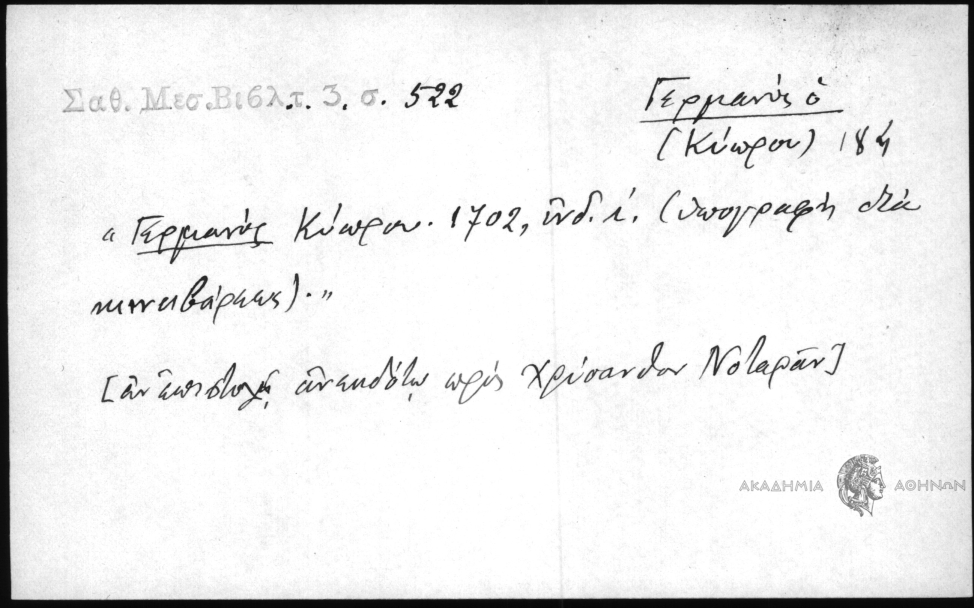 Σαθ. Μεσ. Βιβλ. τ. 3. σ. 522
Γερμανός ὁ
(Κύπρου) 18ῃ
« Γερμανός Κύπρου. 1702, ἰνδ. ί. (ὑπογραφή διά
κινναβάρεως). »
[ἐν ἐπιστολῇ ἀνεκδότῳ πρός Χρύσανθον Νοταρᾶν]
ΑΚΑΔΗΜΙΑ ΑΘΗΝΩΝ